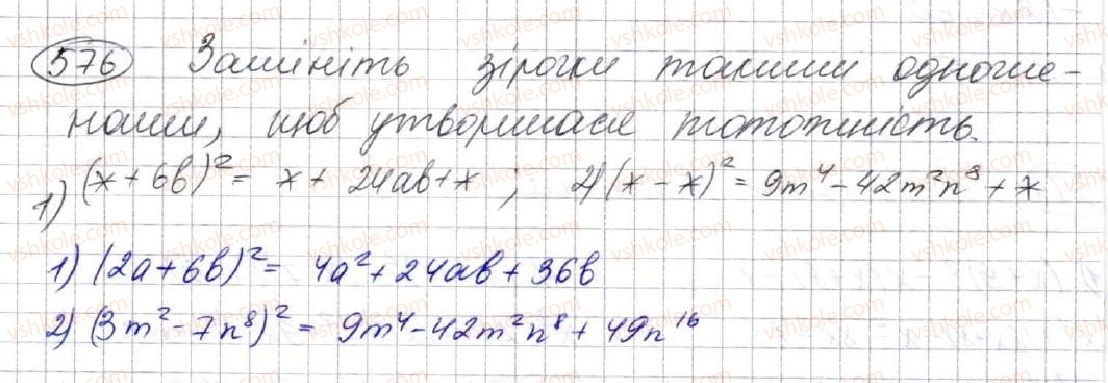 576 Замініть зірочки такими одночле-
нами, щоб утворилася тотожність.
1) (* + 6b)² = * + 24ab + * ; 2) (* - *)² = 9m⁴ - 42m²n⁸ + *
1) (2a + 6b)² = 4a² + 24ab + 36b
2) (3m² - 7n⁸)² = 9m⁴ - 42m²n⁸ + 49n¹⁶